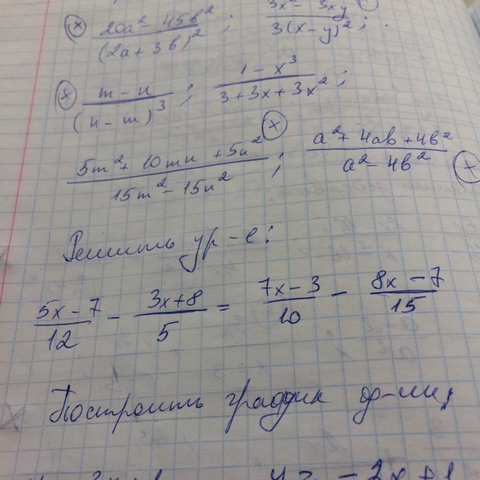 (x) (20a² - 45b²)/(2a + 3b)² ; (3x² - 3xy)/(3(x-y)²) ;
(x) (m - n)/(n - m)³ ; (1 - x³)/(3 + 3x + 3x²) ;
(5m² + 10mn + 5n²)/(15m² - 15n²) (x) ; (a² + 4ab + 4b²)/(a² - 4b²) (x)
Решить ур-е:
(5x - 7)/12 - (3x + 8)/5 = (7x - 3)/10 - (8x - 7)/15
Построить график ф-ии:
y = -2x + 1